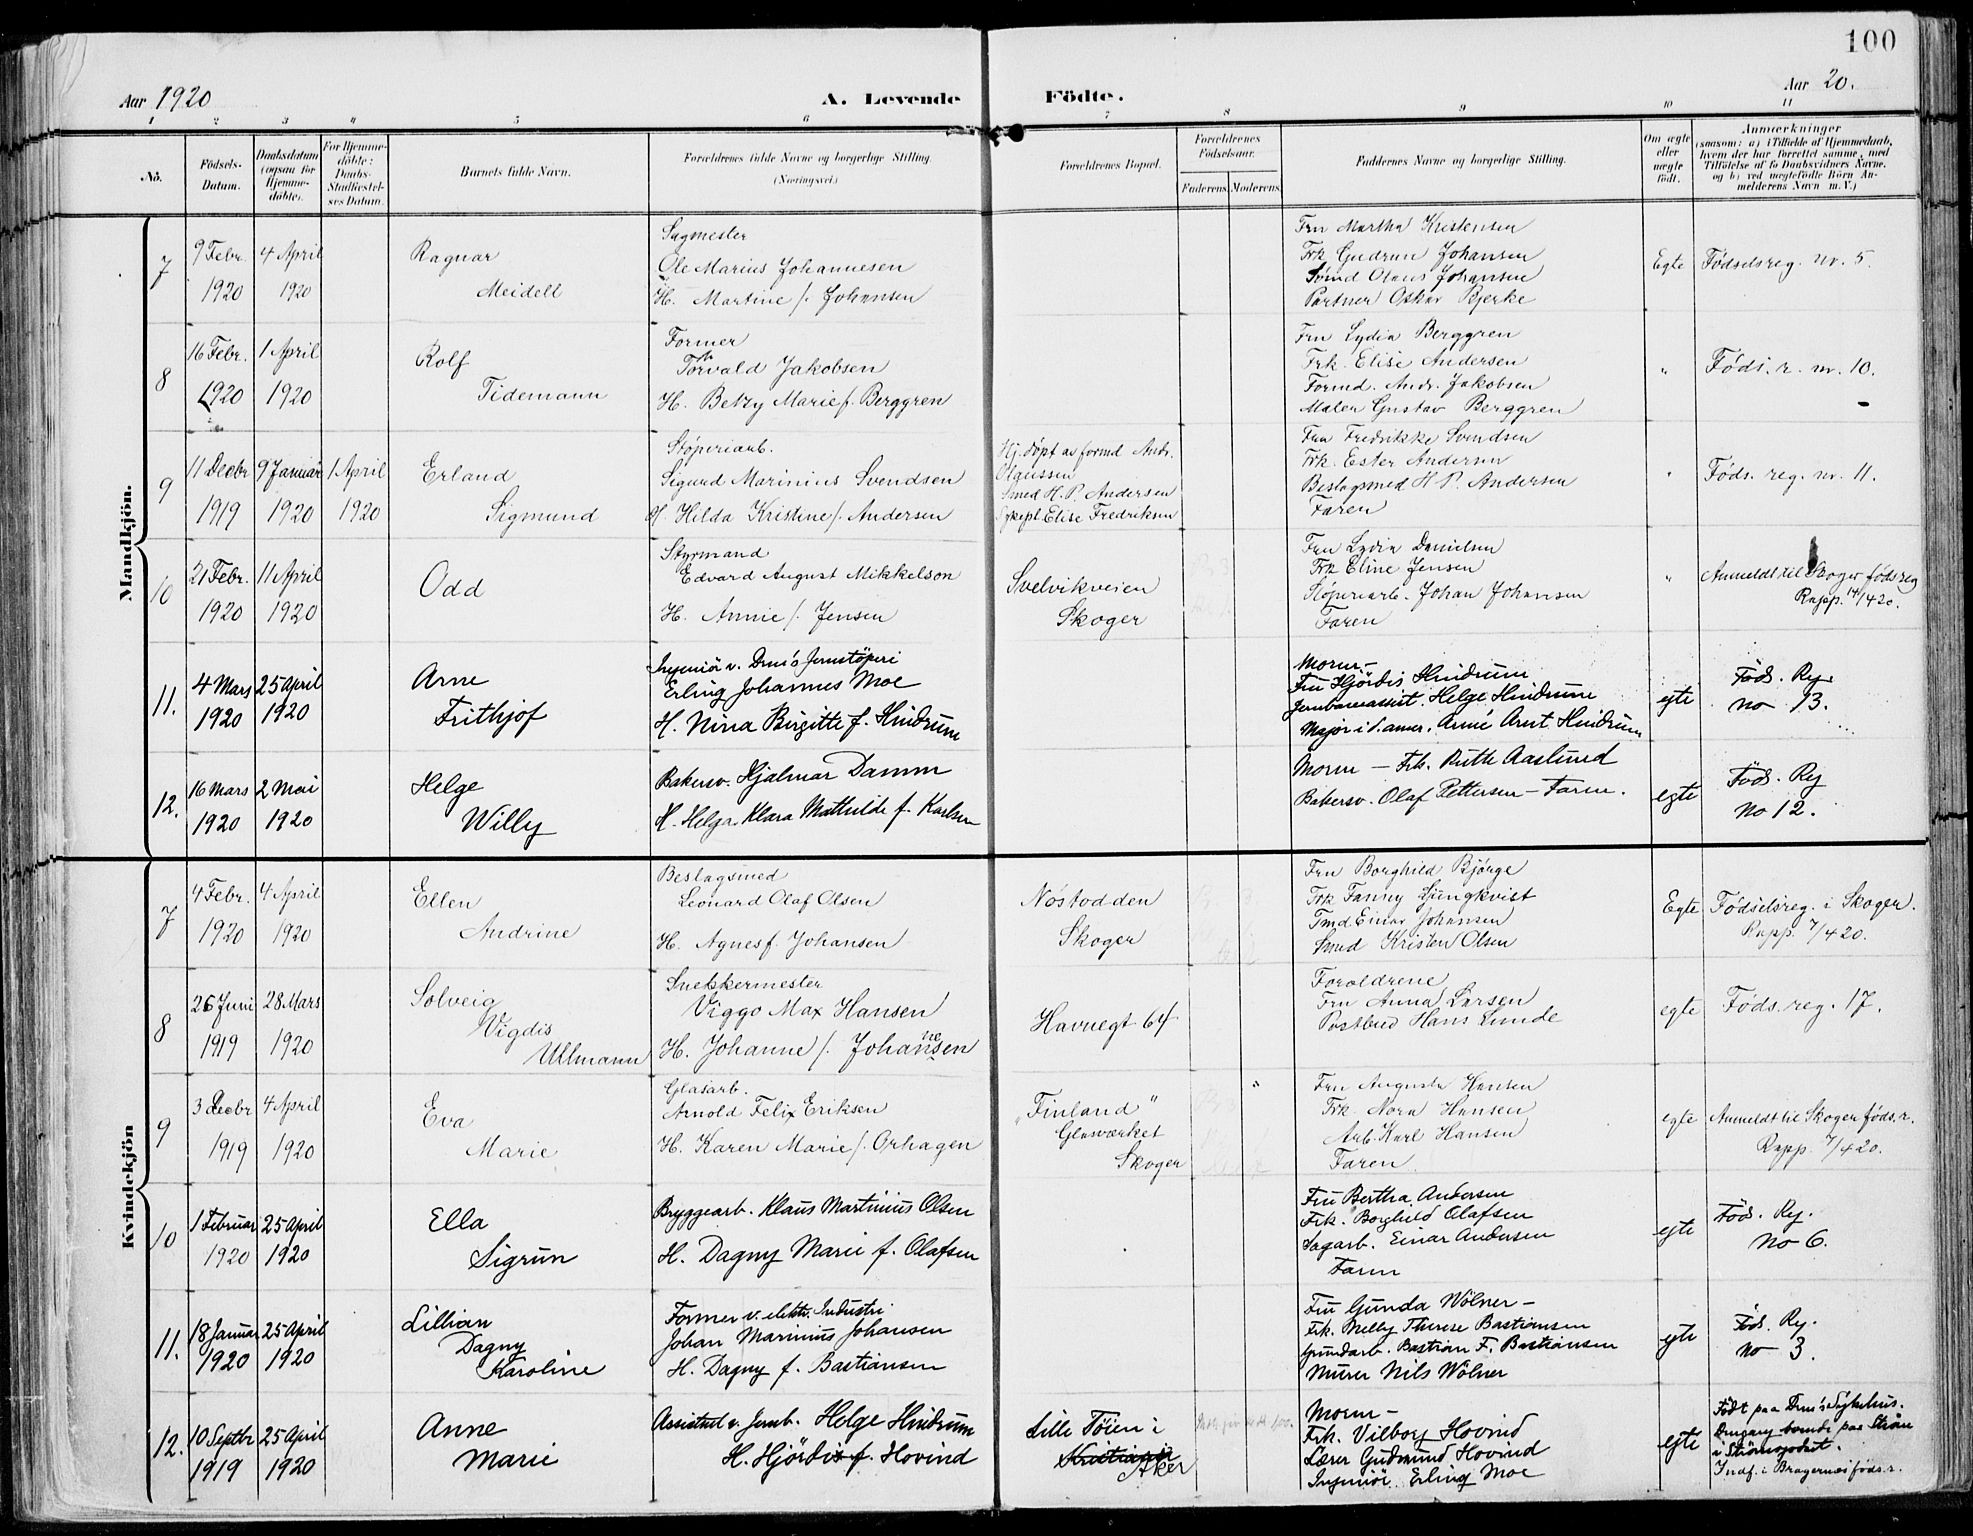 100
Aar 1920
A. Levende
Födte.
Aar 20.
1 2 3 4 5 6 7 8 9 10 11
No.
Födsels-
Datum.
Daabsdatum
(ogsaa for
Hjemme-
döbte).
For Hjemme-
döbte:
Daabs-
Stadfæstel-
ses Datum.
Barnets fulde Navn.
Forældrenes fulde Navne og borgerlige Stilling.
(Næringsvei.)
Forældrenes Bopæl.
Forældrenes
Födselsaar.
Faderens. Moderens.
Faddernes Navne og borgerlige Stilling.
Om ægte
eller
uægte
födt.
Anmærkninger
(saasom: a) i Tilfælde af Hjemmedaab,
hvem der har forrettet samme, med
Tilföielse af to Daabsvidners Navne.
og b) ved uægtefödte Börn An-
melderens Navn m. V.)
Mandkjön.
7
9 Febr.
1920
4 April
1920
Ragnar
Meidell
Sagmester
Ole Marius Johannesen
H. Martine f. Johansen
Fru Martha Kristensen
Frk Gudrun Johansen
Olaus Johansen
Partner Oskar Bjerke
Egte
Födselsreg. nr. 5.
8
16 Febr.
1920
1 April
1920
Rolf
Tidemann
Former
Torvald Jakobsen
H. Betzy Marie f. Berggren
Fru Lydia Berggren
Frk. Elise Andersen
Formd. Andr. Jakobsen
Maler Gustav Berggren
"
Föds. r. nr. 10.
9
11 Decbr
1919
9 Januar
1920
1 April
1920
Erland
Sigmund
Støperiarb.
Sigurd Marinius Svendsen
H. Hilda Kristine f. Andersen
Hj. döpt av formd Andr.
Olaussen
Smed H. P. Andersen
Sykepl. Elise Fredriksen
Fru Fredrikke Svendsen
Frk. Ester Andersen
Beslagsmed H. P. Andersen
Faren
"
Föds. reg. nr. 11.
10
21 Febr.
1920
11 April
1920
Odd
Styrmand
Edvard August Mikkelson
H. Annie f. Jensen
Svelvikveien
Skoger
Fru Lydia Danielsen
Frk Eline Jensen
Støperiarb. Johan Johansen
Faren
"
Anmeldt til Skoger föds reg
Rapp. 14/4 20.
11.
4 Mars
1920
25 April
1920
Arne
Frithjof
Ingeniör v. Drm's Jernstøperi
Erling Johannes Moe
H. Nina Birgitte f. Hindrum
Moren -
Fru Hjördis Hindrum
Jernbaneassist. Helge Hindrum
Major i Arnt Hindrum
egte
Föd. Reg.
no 13.
12.
16 Mars
1920
2 Mai
1920
Helge
Willy
Bakersv. Hjalmar Damm
H. Helga Klara Mathilde f. Karlsen
Moren - Frk. Ruth Aaslund
Bakersv. Olaf Pettersen - Faren.
egte
Föd. Reg
No 12.
Kvindekjön
7
4 Febr.
1920
4 April
1920
Ellen
Andrine
Beslagsmed
Leonard Olaf Olsen
H. Agnes f. Johansen
Nöstodden
Skoger
Fru Borghild Bjørge
Frk Fanny Ljungkvist
Einar Johansen
Smed Kristen Olsen
Egte
Födselsreg. i Skoger.
Rapp. 7/4 20.
8
26 Juni
1919
28 Mars
1920
Solveig
Vigdis
Ullmann
Snekkermester
Viggo Max Hansen
H. Johanne f. Johannesen
Havnegt 64
Foreldrene
Fru Anna Larsen
Postbud Hans Lunde
egte
Föds. reg. 17.
9
3 Decbr
1919
4 April
1920
Eva
Marie
Glasarb.
Arnold Felix Eriksen
H. Karen Marie f. Orhagen
"Finland"
Glasværket
Skoger
Fru Augusta Hansen
Frk. Nora Hansen
Arb. Karl Hansen
Faren
egte
Anmeldt til Skoger föds. r.
Rapp. 7/4 20.
10
1 Februar
1920
25 April
1920
Ella
Sigrun
Bryggearb. Klaus Martinius Olsen
H. Dagny Marie f. Olafsen
Fru Bertha Andersen
Frk. Borghild Olafsen
Sagarb. Einar Andersen
Faren
egte
Föd. Reg.
No 6.
11.
18 Januar
1920
25 April
1920
Lillian
Dagny
Karoline
Former v. elektr. Industri
Johan Marinius Johansen
H. Dagny f. Bastiansen
Fru Gunda Wölner -
Frk. Melly Therese Bastiansen
Grundarb. Bastian F. Bastiansen
Murer Nils Wölner
egte
Föd. Reg.
no 3.
12.
10 Septbr
1919
25 April
1920
Anne
Marie
Assistent v. Jernb. Helge Hindrum
H. Hjördis f. Hovind
Lille Töien i
Kristiania
Aker
Moren -
Frk. Vilborg Hovind
Lærer Gudmund Hovind
Ingeniör Erling Moe
egte
Födt paa Drm's Sykehus.
boende paa Ström
i Strömsgodset.
Indf. i Bragernæs föds. r.